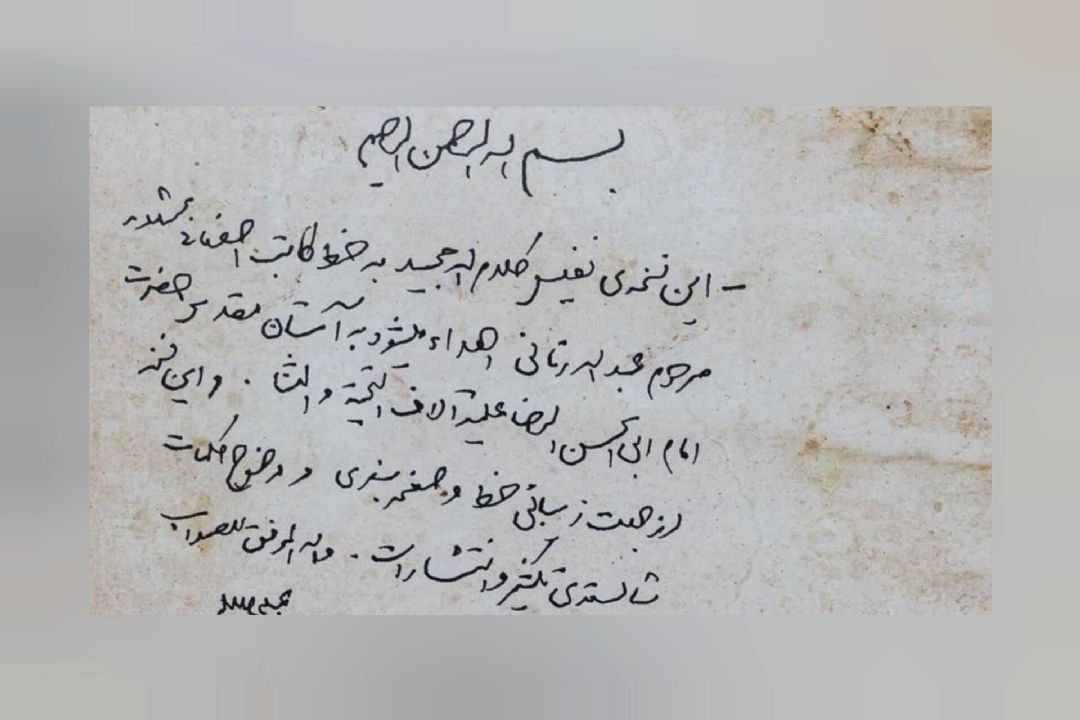 بسم الله الرحمن الرحیم
- این نسخه‌ی نفیس کلام الله مجید به خط کاتب اصفهانی
مرحوم عبدالله اهداء میشود به آستان مقدس حضرت
امام ابی الحسن الرضا علیه آلاف التحیة والثنا . و این نسخه
از جهت زیبائی خط و صفحه بندی و وضوح کلمات
شایسته‌ی تکثیر و انتشار است . والله الموفق للصواب